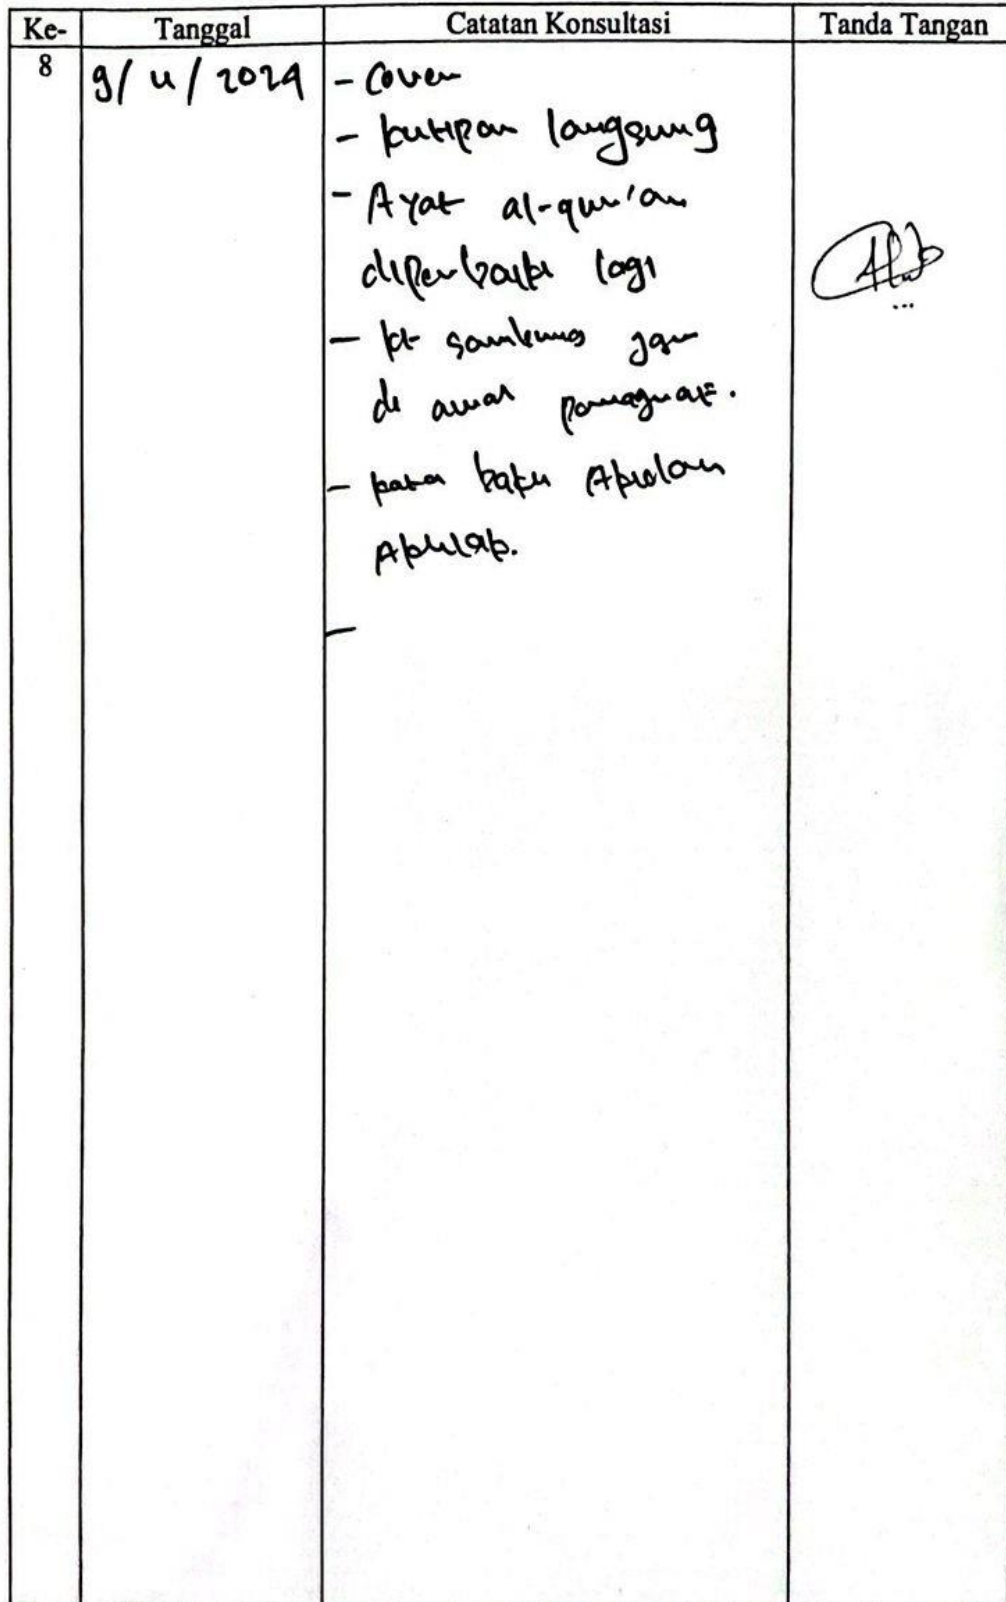 Ke- Tanggal Catatan Konsultasi Tanda Tangan
8 9/ 4 / 2024 - Cover
- kutipan langsung
- Ayat al-qur'an
diperbaiki lagi
- kt sambung jgn
di awal
- kata baku